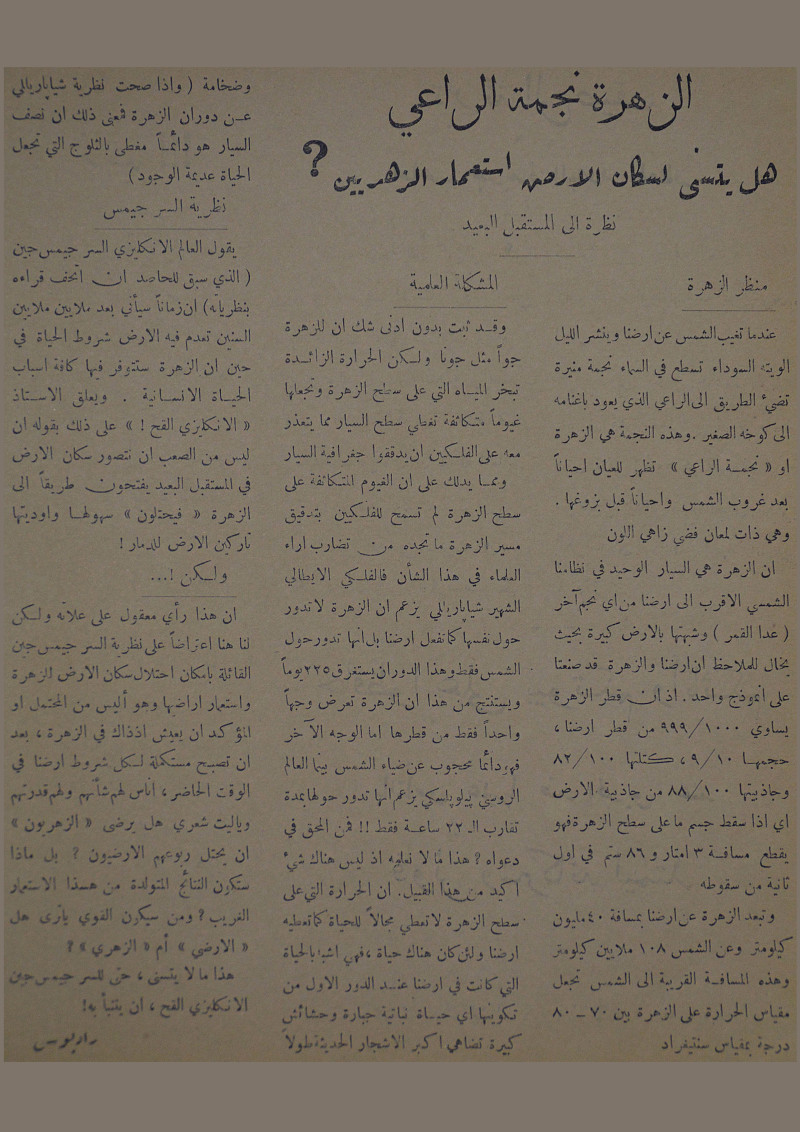 الزهرة نجمة الراعي
هل يتسنى لسكان الارض استعمار الزهريين ؟
نظرة الى المستقبل البعيد
منظر الزهرة
عندما تغيب الشمس عن ارضنا وينشر الليل
الويته السوداء تسطع في السماء نجمة منيرة
تضيء الطريق الى الراعي الذي يعود باغنامه
الى كوخه الصغير . وهذه النجمة هي الزهرة
او « نجمة الراعي » تظهر للعيان احياناً
بعد غروب الشمس واحياناً قبل بزوغها .
وهي ذات لمعان فضي زاهي اللون
ان الزهرة هي السيار الوحيد في نظامنا
الشمسي الاقرب الى ارضنا من اي نجم آخر
( عدا القمر ) وشبهتها بالارض كبيرة بحيث
يخال للملاحظ ان ارضنا والزهرة قد صنعتا
على انموذج واحد . اذ ان قطر الزهرة
يساوي ٩٩٩/١٠٠٠ من قطر ارضنا ،
حجمها ٩/١٠ ، كتلتها ٨٢/١٠٠
وجاذبيتها ٨٨/١٠٠ من جاذبية الارض
اي اذا سقط جسم ما على سطح الزهرة فهو
يقطع مسافة ٣ امتار و ٨٦ سم في اول
ثانية من سقوطه
وتبعد الزهرة عن ارضنا بمسافة ٤٠ مليون
كيلومتر وعن الشمس ١٠٨ ملايين كيلومتر
وهذه المسافة القريبة الى الشمس تجعل
مقياس الحرارة على الزهرة بين ٧٠ – ٨٠
درجة بمقياس سنتيغراد
المشكلة العامية
وقد ثبت بدون ادنى شك ان للزهرة
جواً مثل جونا ولكن الحرارة الزائدة
تبخر المياه التي على سطح الزهرة وتجعلها
غيوماً متكاثفة تغطي سطح السيار مما يتعذر
معه على الفلكيين ان يدققوا جغرافية السيار
ومما يدلك على ان الغيوم المتكاثفة على
سطح الزهرة لم تسمح للفلكيين بتدقيق
مسير الزهرة ما تجده من تضارب اراء
العلماء في هذا الشأن فالفلكي الايطالي
الشهير شياپاريللي يزعم ان الزهرة لا تدور
حول نفسها كما تفعل ارضنا بل انها تدور حول
الشمس فقط وهذا الدوران يستغرق ٢٢٥ يوماً
ويستنتج من هذا ان الزهرة تعرض وجهاً
واحداً فقط من قطرها اما الوجه الآخر
فهو دائماً محجوب عن ضياء الشمس بينما العالم
الروسي بيلوپلسكي يزعم انها تدور حولها بمدة
تقارب الـ ٢٢ ساعة فقط !! فمن المحق في
دعواه ? هذا ما لا نعلمه اذ ليس هناك شيء
اكيد من هذا القبيل . ان الحرارة التي على
سطح الزهرة لا تعطي مجالاً للحياة كما تعطيه
ارضنا ولئن كان هناك حياة ، فهي اشبه بالحياة
التي كانت في ارضنا عند الدور الاول من
تكوينها اي حياة نباتية جبارة وحشائش
كبيرة تضاهي اكبر الاشجار الحديثة طولاً
وضخامة ( واذا صحت نظرية شياپاريللي
عن دوران الزهرة فمعنى ذلك ان نصف
السيار هو دائماً مغطى بالثلوج التي تجعل
الحياة عديمة الوجود )
نظرية السر جيمس
يقول العالم الانكليزي السر جيمس جين
( الذي سبق للحاصد ان اتحف قراءه
بنظرياته ) ان زماناً سيأتي بعد ملايين ملايين
السنين تعدم فيه الارض شروط الحياة في
حين ان الزهرة ستتوفر فيها كافة اسباب
الحياة الانسانية . ويعلق الاستاذ
« الانكليزي القح ! » على ذلك بقوله ان
ليس من الصعب ان نتصور سكان الارض
في المستقبل البعيد يفتحون طريقاً الى
الزهرة « فيحتلون » سهولها واوديتها
تاركين الارض للدمار !
ولكن !...
ان هذا رأي معقول على علاته ولكن
لنا هنا اعتراضاً على نظرية السر جيمس جين
القائلة بامكان احتلال سكان الارض الزهرة
واستعمار اراضيها وهو أليس من المحتمل او
المؤكد ان يعيش اذذاك في الزهرة ، بعد
ان تصبح مستكملة لكل شروط ارضنا في
الوقت الحاضر ، اناس لهم شأنهم ولهم قدرتهم
وياليت شعري هل يرضى « الزهريون »
ان يحتل ربوعهم الارضيون ? بل ماذا
ستكون النتائج المتولدة من هسذا الاستعمار
الغريب ? ومن سيكون القوي ياترى هل
« الارضي » أم « الزهري » ?
هذا ما لا يتسنى ، حتى للسر جيمس جين
الانكليزي القح ، ان يتنبأ به !
راديوس